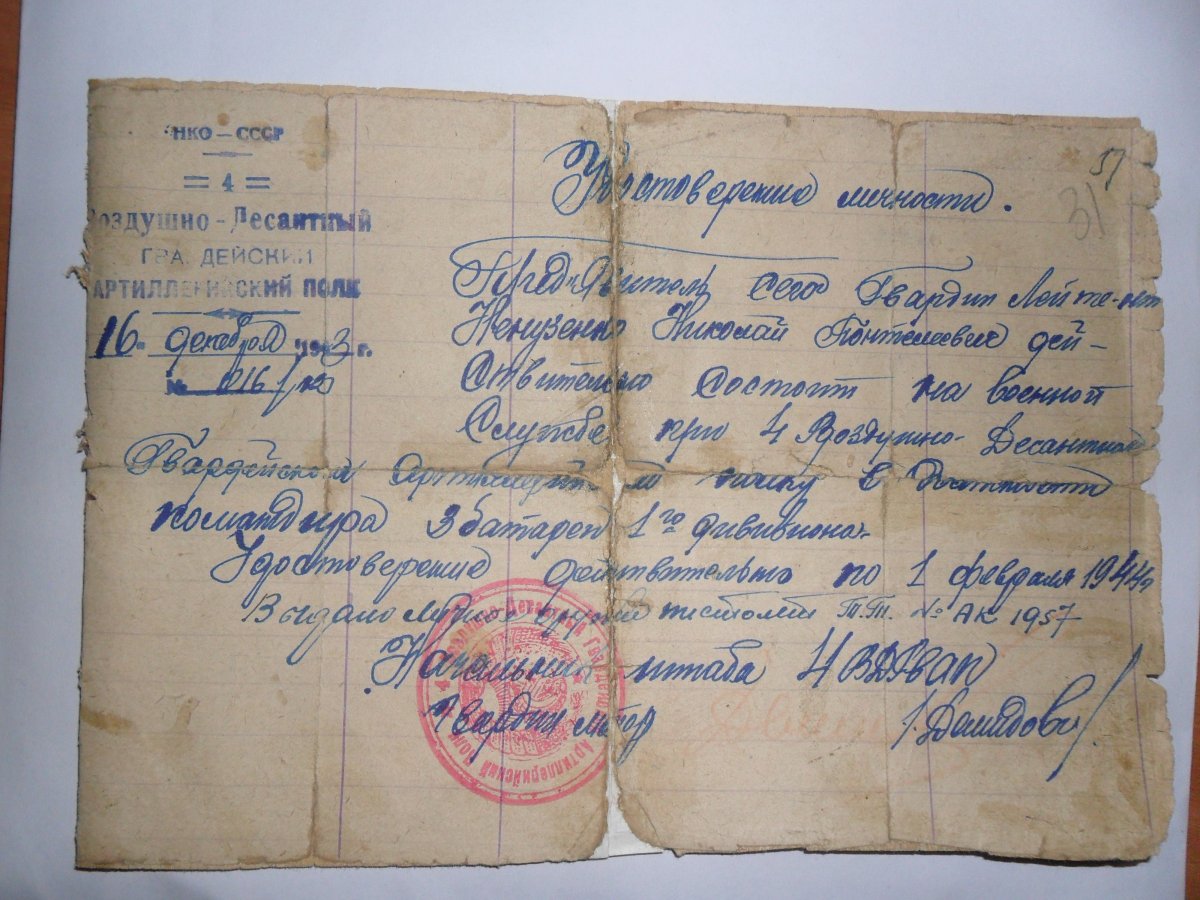 НКО — СССР
= 4 =
Воздушно-Десантный
ГВАРДЕЙСКИЙ
АРТИЛЛЕРИЙСКИЙ ПОЛК
16 декабря 1943 г.
№ 016/
51
31
Удостоверение личности.
Пред'явитель сего Гвардии Лейте-нт
Николай дей-
ствительно состоит на военной
Службе при 4 Воздушно-Десантном
Гвардейском Артиллерийском полку в должности
командира 3 батареи 1го дивизиона.
Удостоверение действительно по 1 февраля 1944
Выдано личное оружие пистолет Т.Т. № АК 1957
Начальник штаба 4 ВДГвАП
Гвардии майор /Демидов/
4 Воздушно-Десантный Гвардейский Артиллерийский Полк